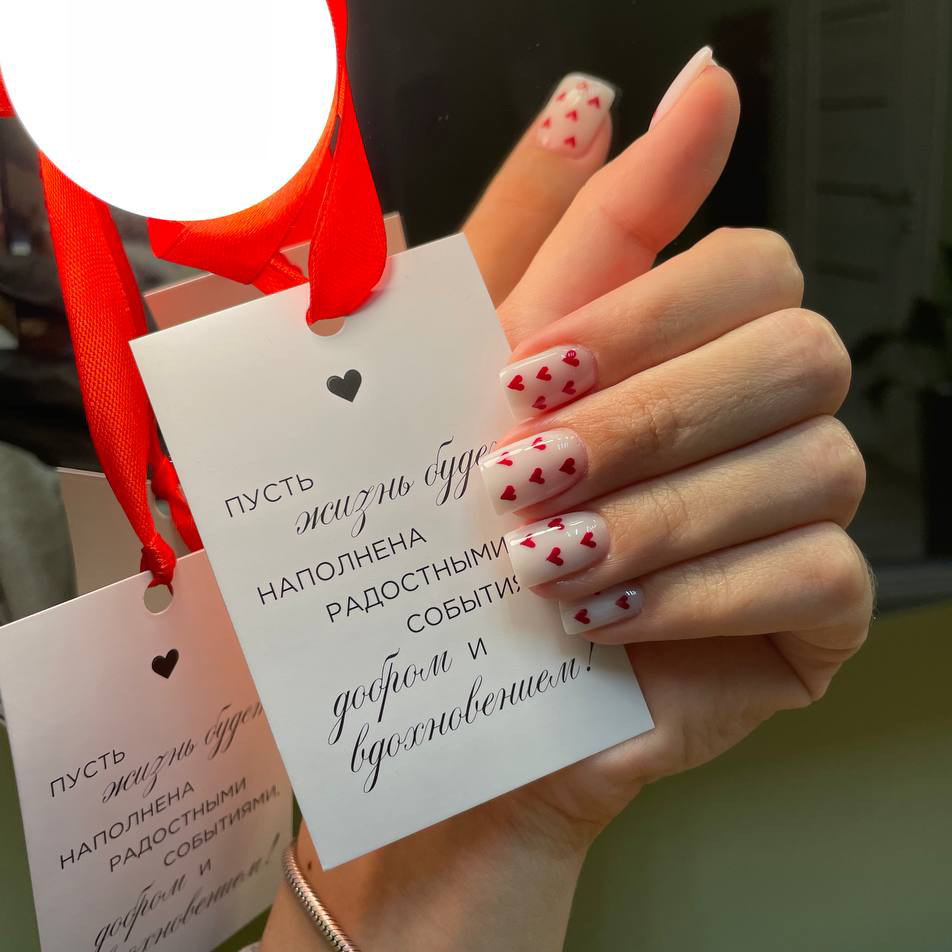 ПУСТЬ
жизнь буде
НАПОЛНЕНА
РАДОСТНЫМИ
СОБЫТИЯ
добром и
вдохновением!
ПУСТЬ
жизнь будет
НАПОЛНЕНА
РАДОСТНЫМИ
СОБЫТИЯМИ,
добром и
вдохновением!